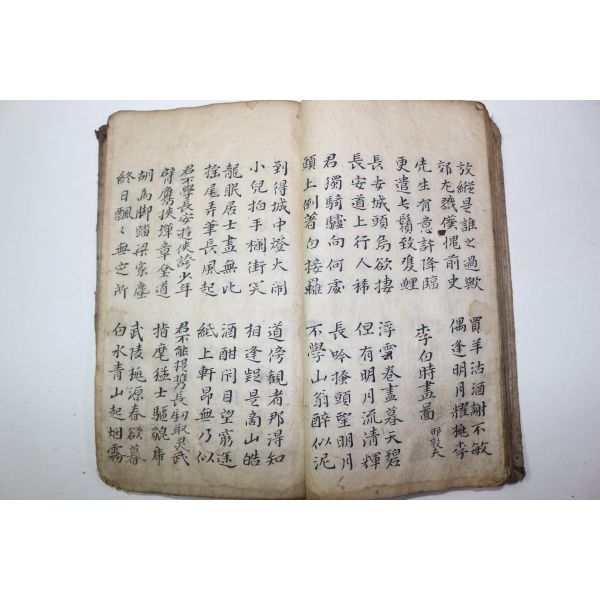 放縱是誰之過歟
郊尤戮僕愧前史
買羊沽酒謝不敏
偶逢明月耀桃李
先生有意許降臨
更遣長鬚致雙鯉
李白時畫圖 邢敦夫
長安城頭烏欲捿
長安道上行人稀
浮雲卷盡暮天碧
但有明月流清輝
君獨騎驢向何處
頭上倒著白接䍦
長吟搔頭望明月
不學山翁醉似泥
到得城中燈火閙
小兒拍手攔街笑
道傍觀者那得知
相逢疑是商山皓
龍眠居士畫無比
搖尾弄筆長風起
酒酣閉目望窮途
紙上軒昂無乃似
君不學長安遊俠誇少年
臂鷹挾彈章全道
君不能提携長釰取灵武
指麾猛士驅貔席
胡爲脚踏梁家塵
終日飄〻無定所
武陵桃源春欲暮
白水青山起烟霧